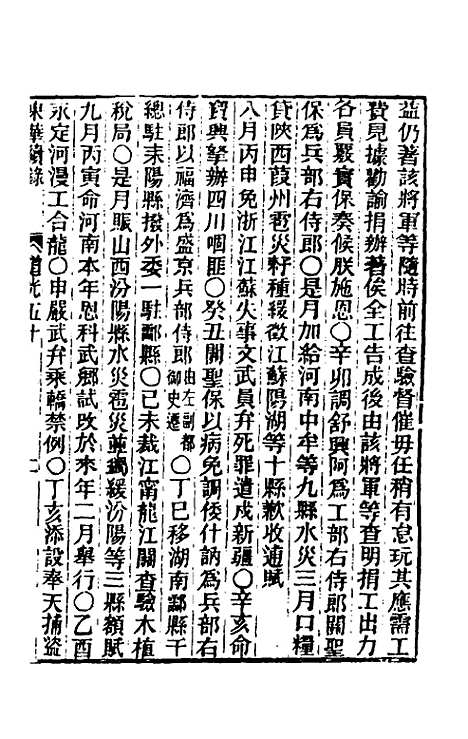 益仍著該將軍等隨時前往查驗督催毋任稍有怠玩其應需工
費見據勸諭捐辦著俟全工告成後由該將軍等查明捐工出力
各員嚴實保奏候朕施恩〇辛卯調舒興阿爲工部右侍郎關聖
保爲兵部右侍郎〇是月加給河南中牟等九縣水災三月口糧
貸陝西葭州雹災籽種緩徵江蘇陽湖等十縣歉收逋賦
八月丙申免浙江江蘇失事文武員弁死罪遣戍新疆〇辛亥命
寶興拏辦四川啯匪〇癸丑關聖保以病免調倭什訥爲兵部右
侍郎以福濟爲盛京兵部侍郎由左副都御史遷〇丁巳移湖南酃縣千
總駐耒陽縣撥外委一駐酃縣〇己未裁江甯龍江關查驗木植
稅局〇是月賑山西汾陽縣水災雹災並蠲緩汾陽等三縣額賦
九月丙寅命河南本年恩科武鄉試改於來年二月舉行〇乙酉
永定河漫工合龍〇申嚴武弁乘轎禁例〇丁亥添設奉天捕盜
東華續錄 道光五十